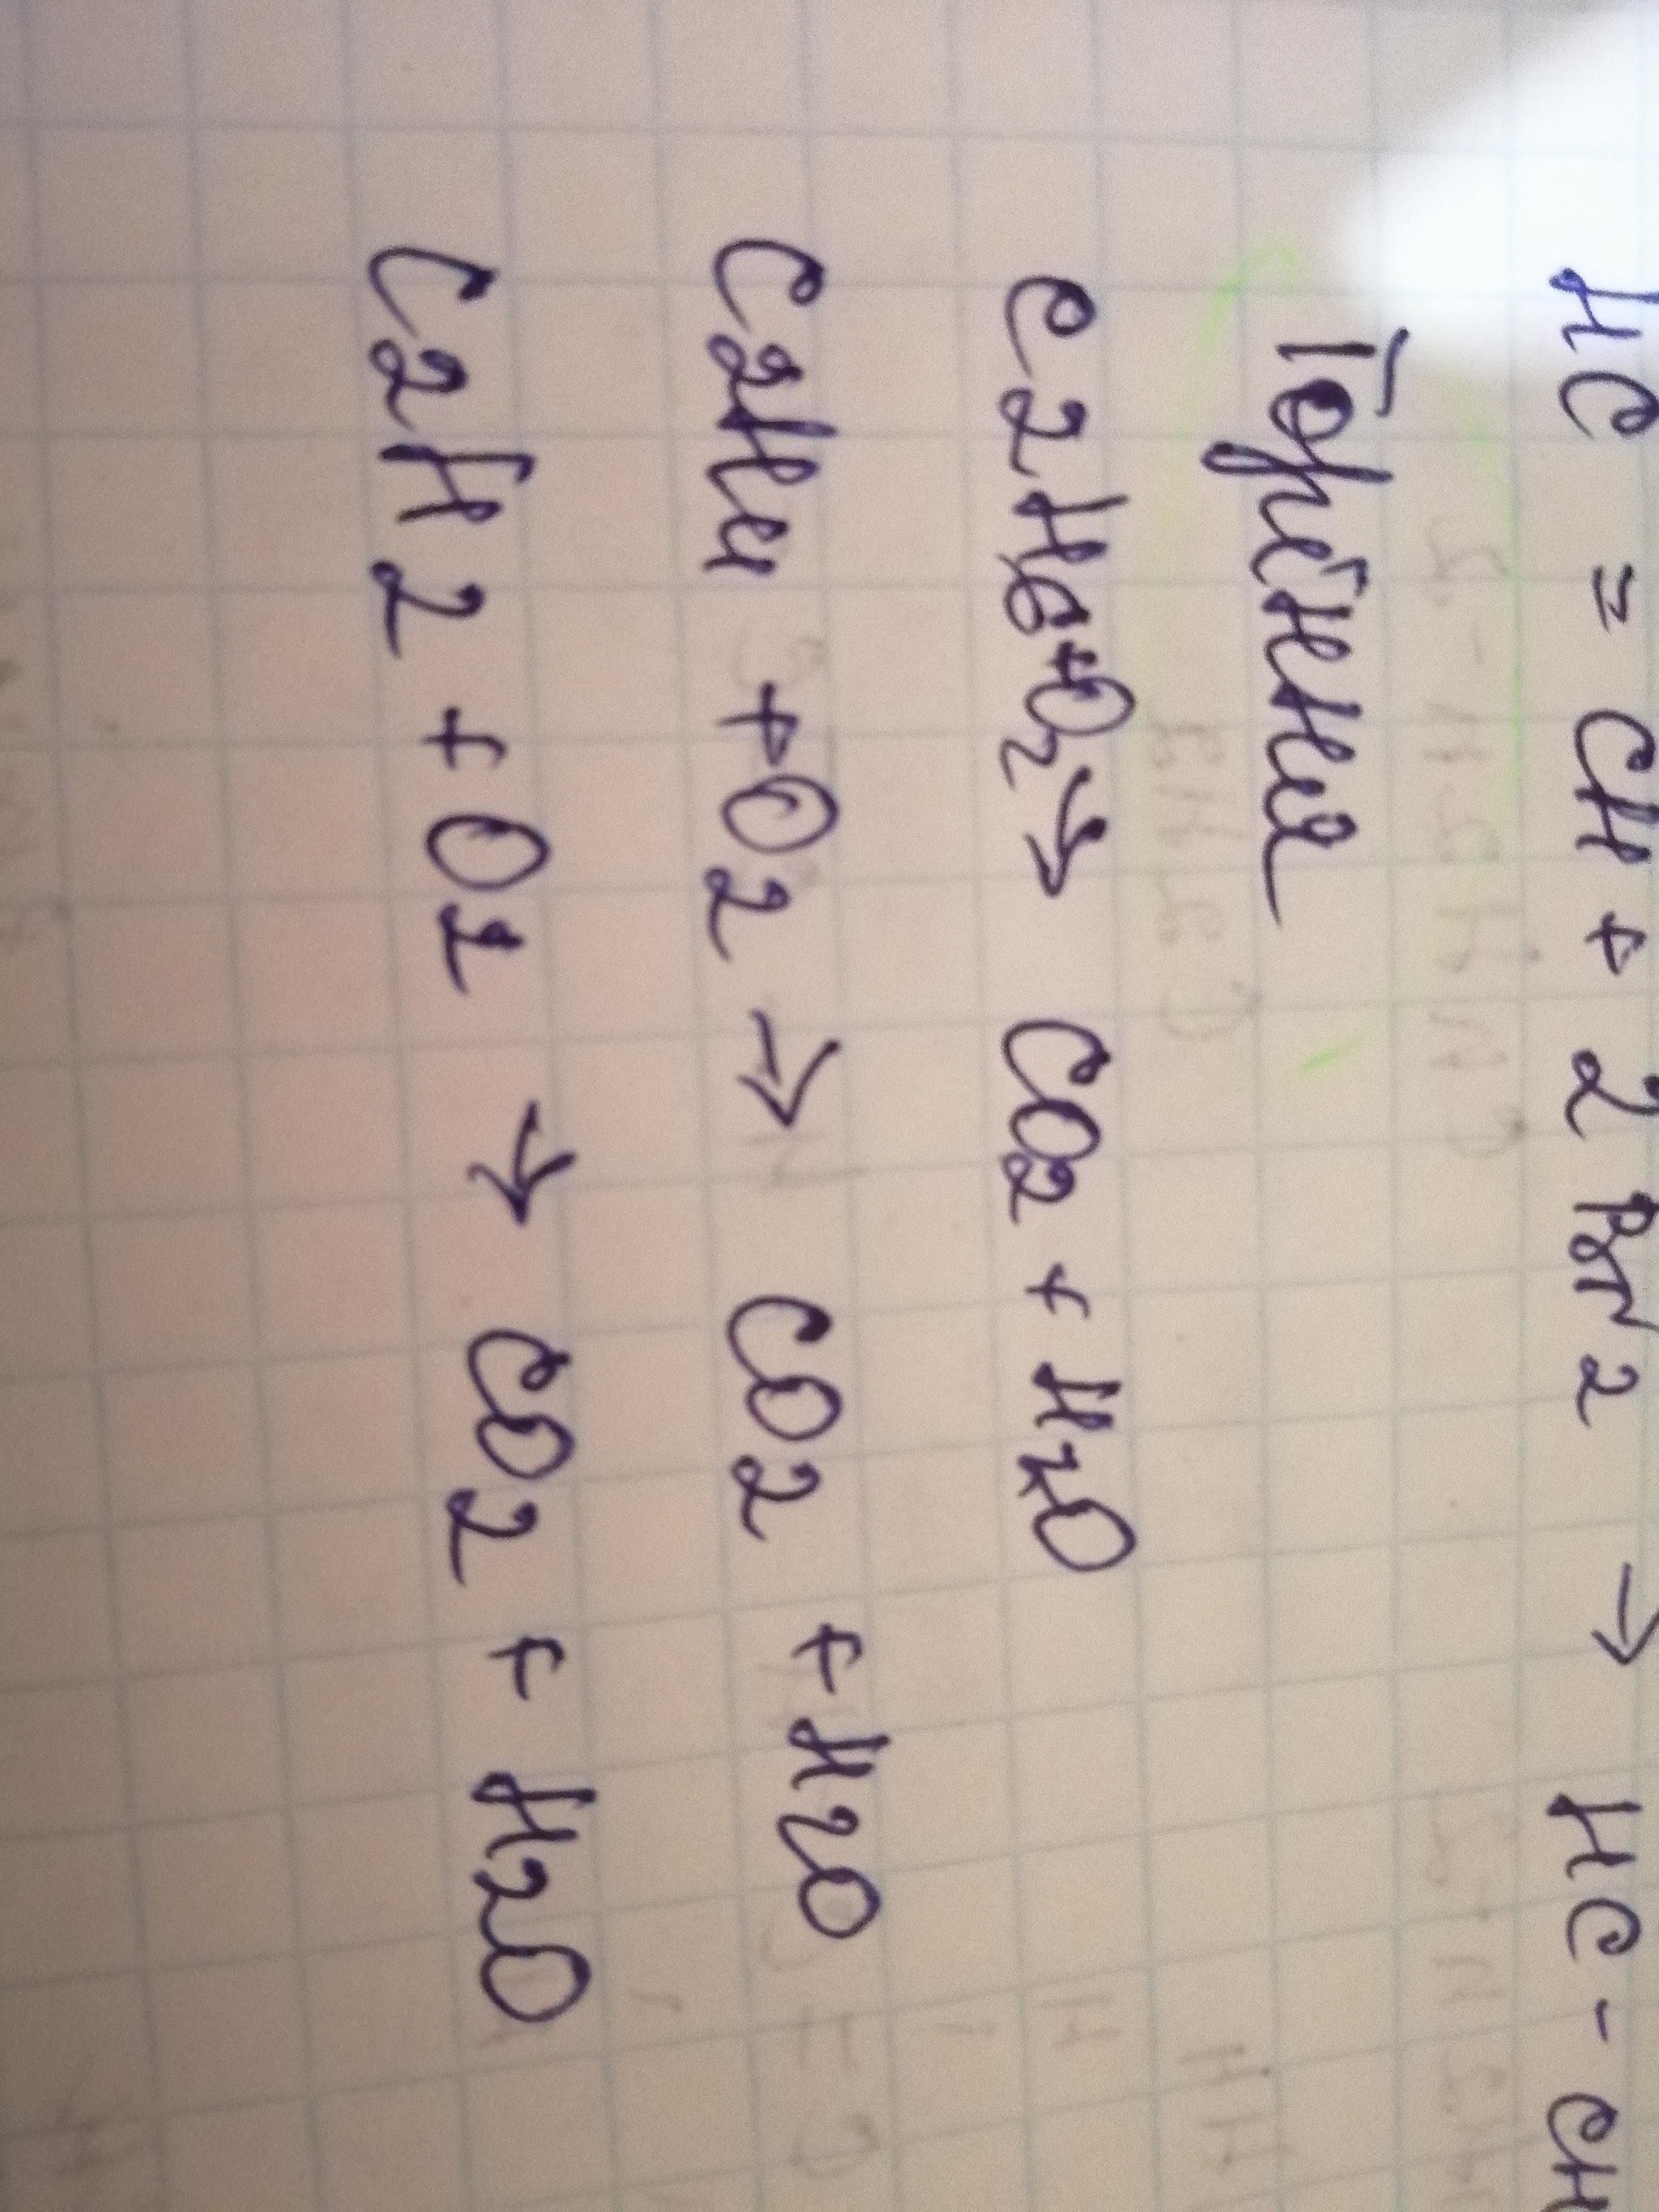 HC = CH + 2 Br2 → HC - CH
Горіння
C2H6+O2→ CO2 + H2O
C2H4 +O2 → CO2 + H2O
C2H2 + O2 → CO2 + H2O